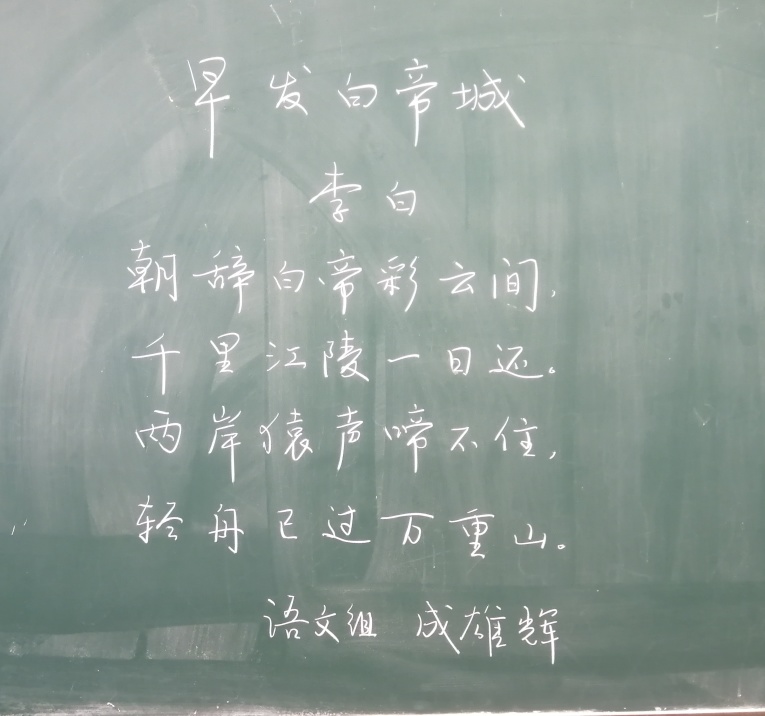 早发白帝城
李白
朝辞白帝彩云间，
千里江陵一日还。
两岸猿声啼不住，
轻舟已过万重山。
语文组 成雄辉